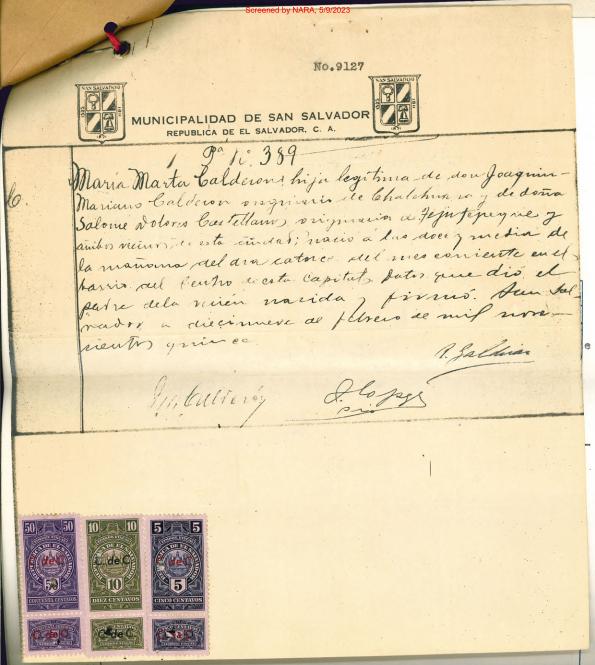 Screened by NARA, 5/9/2023
No. 9127
SAN SALVADOR
SAN SALVADOR
MUNICIPALIDAD DE SAN SALVADOR
REPUBLICA DE EL SALVADOR, C. A.
Pª Nº 389
María Marta Calderon: hija legítima de don Joaquin
Mariano Calderon originario de Chalchuapa y de doña
Salome Dolores Castellanos, originaria de Tejutepeque y
ambos vecinos de esta ciudad; nació á las doce y media de
la mañana del dia catorce del mes corriente en el
barrio del Centro de esta Capital, datos que dió el
padre de la recien nacida y firmó. San Sal-
vador a diecinueve de febrero de mil nove-
cientos quince.
Calderón
Srio
50 50
10 10
5 5
C. de C.
C. de C.
C. de C.
50
10
5
CINCUENTA CENTAVOS
DIEZ CENTAVOS
CINCO CENTAVOS
C. de C.
C. de C.
C. de C.